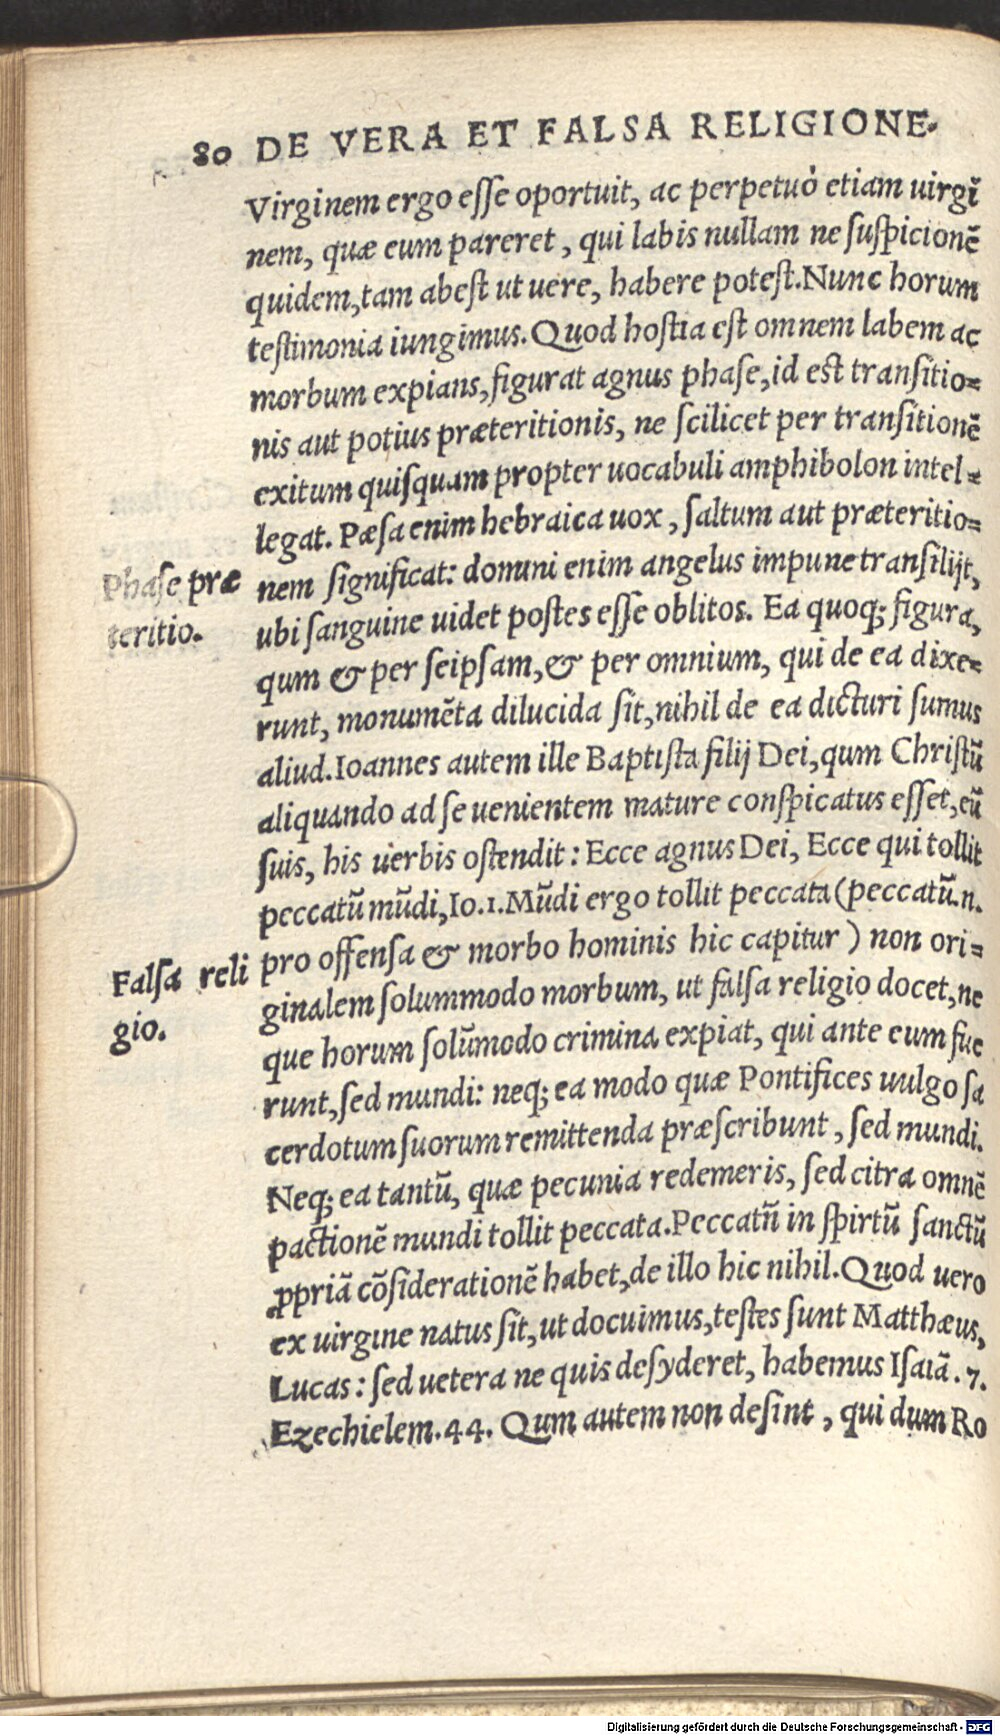 80 DE VERA ET FALSA RELIGIONE.
Virginem ergo eſſe oportuit, ac perpetuò etiam uirgĩ
nem, quæ eum pareret, qui labis nullam ne ſuſpicionẽ
quidem, tam abeſt ut uere, habere poteſt. Nunc horum
teſtimonia iungimus. Quod hoſtia eſt omnem labem ac
morbum expians, figurat agnus phaſe, id est tranſitio=
nis aut potius præteritionis, ne ſcilicet per tranſitionẽ
exitum quiſquam propter uocabuli amphibolon intel=
legat. Pæſa enim hebraica uox, ſaltum aut præteritio=
nem ſignificat: domini enim angelus impune tranſilijt,
Phaſe præ
teritio.
ubi ſanguine uidet poſtes eſſe oblitos. Ea quoq; figura,
qum & per ſeipſam, & per omnium, qui de ea dixe=
runt, monumẽta dilucida ſit, nihil de ea dicturi ſumus
aliud. Ioannes autem ille Baptiſta filij Dei, qum Chriſtũ
aliquando ad ſe uenientem mature conſpicatus eſſet, eũ
ſuis, his uerbis oſtendit: Ecce agnus Dei, Ecce qui tollit
peccatũ mũdi, Io.1. Mũdi ergo tollit peccata (peccatũ.n.
pro offenſa & morbo hominis hic capitur) non ori=
Falſa reli
gio.
ginalem ſolummodo morbum, ut falſa religio docet, ne
que horum ſolũmodo crimina expiat, qui ante eum fue
runt, ſed mundi: neq; ea modo quæ Pontifices uulgo ſa
cerdotum ſuorum remittenda præſcribunt, ſed mundi.
Neq; ea tantũ, quæ pecunia redemeris, ſed citra omnẽ
pactionẽ mundi tollit peccata. Peccatũ in ſpirtũ ſanctũ
ꝓpriã cõſiderationẽ habet, de illo hic nihil. Quod uero
ex uirgine natus ſit, ut docuimus, teſtes ſunt Matthæus,
Lucas: ſed uetera ne quis deſyderet, habemus Iſaiã.7.
Ezechielem.44. Qum autem non deſint, qui dum Ro
Digitalisierung gefördert durch die Deutsche Forschungsgemeinschaft - DFG